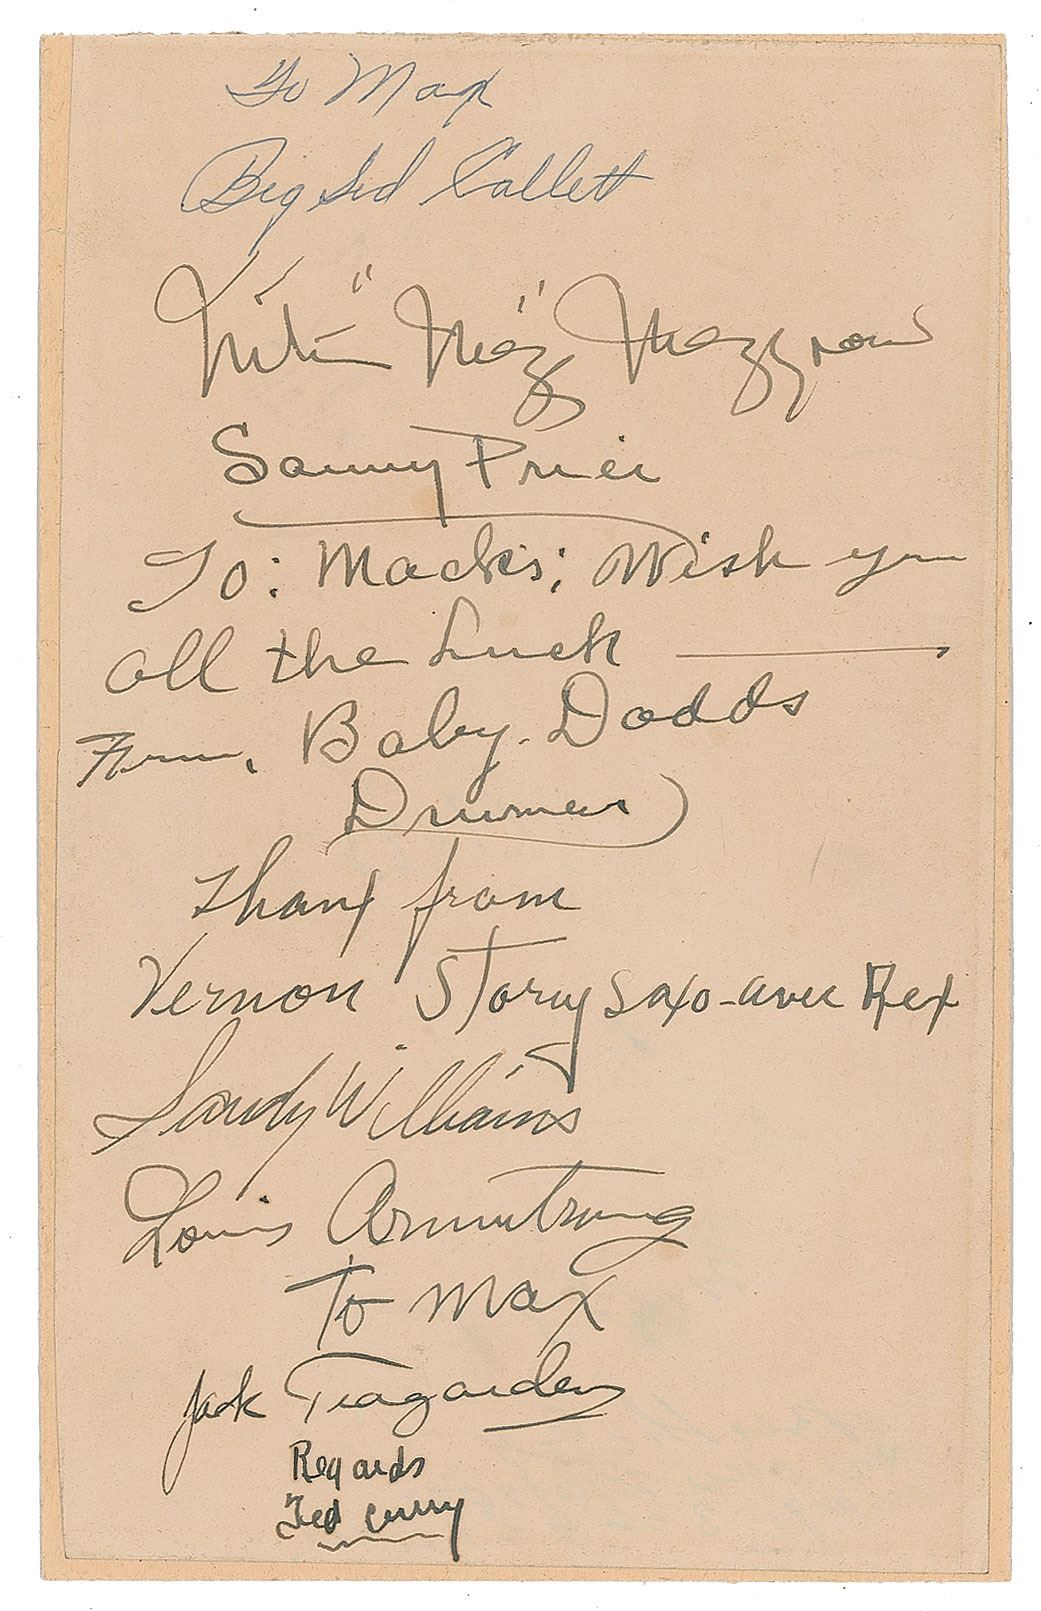 To Max
Big Sid Catlett
Milton "Mezz" Mezzrow
Sammy Price
To: Macks; Wish you
all the Luck
From, Baby. Dodds
Drummer)
Thanx from
Vernon Story saxo-avec Rex
Sandy Williams
Louis Armstrong
To Max
Jack Teagarden
Regards
Ted Curry